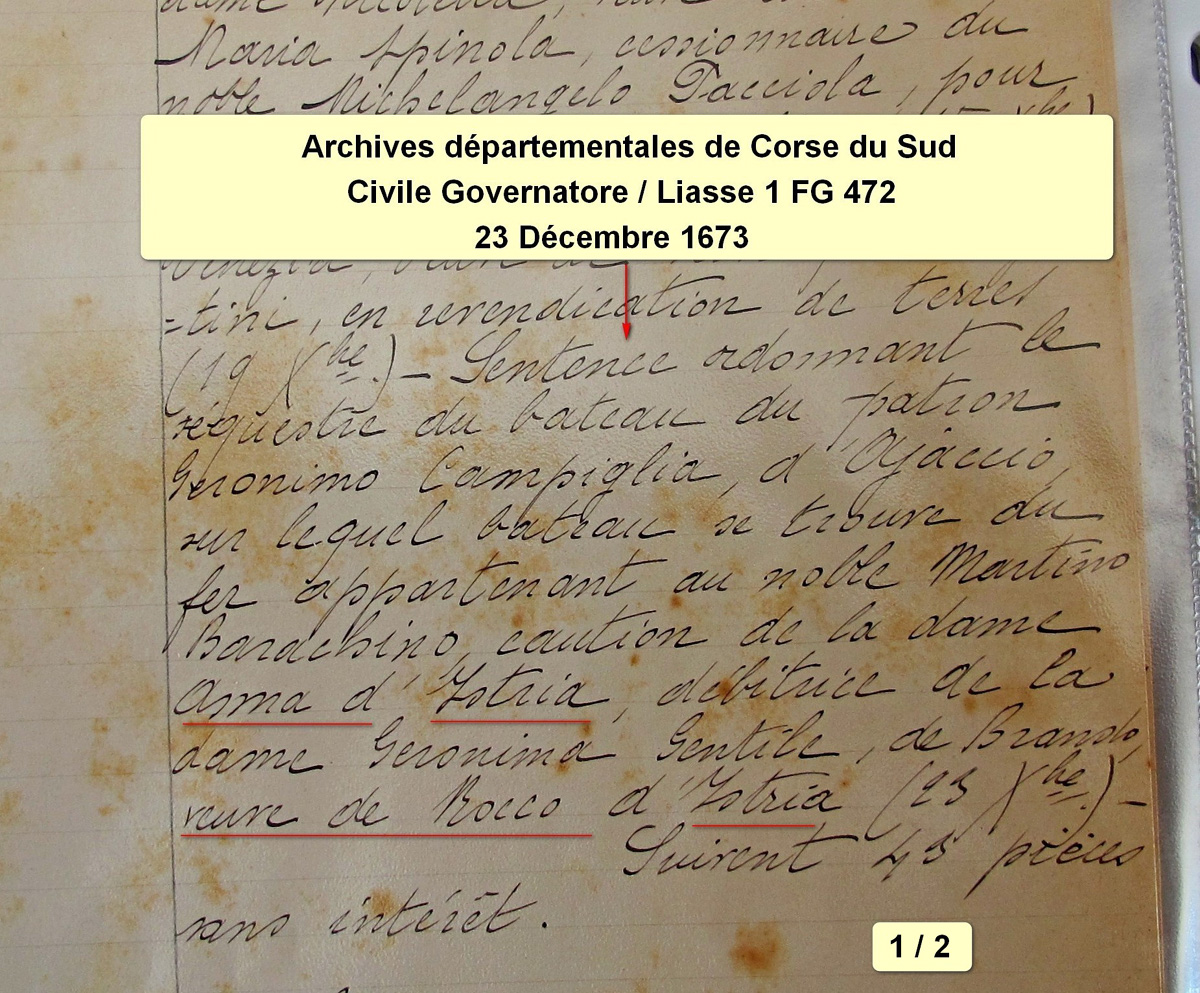 Maria Spinola, cessionnaire du
noble Michelangelo Pacciola, pour
Archives départementales de Corse du Sud
Civile Governatore / Liasse 1 FG 472
23 Décembre 1673
-tini, en revendication de terres
(19 Xbe) - Sentence ordonnant le
séquestre du bateau du patron
Geronimo Campiglia, d'Ajaccio,
sur lequel bateau se trouve du
fer appartenant au noble Martino
Barachino, caution de la dame
Anna d'Istria, débitrice de la
dame Geronima Gentile, de Brando,
veuve de Rocco d'Istria (23 Xbe) -
Suivent 43 pièces
sans intérêt.
1 / 2